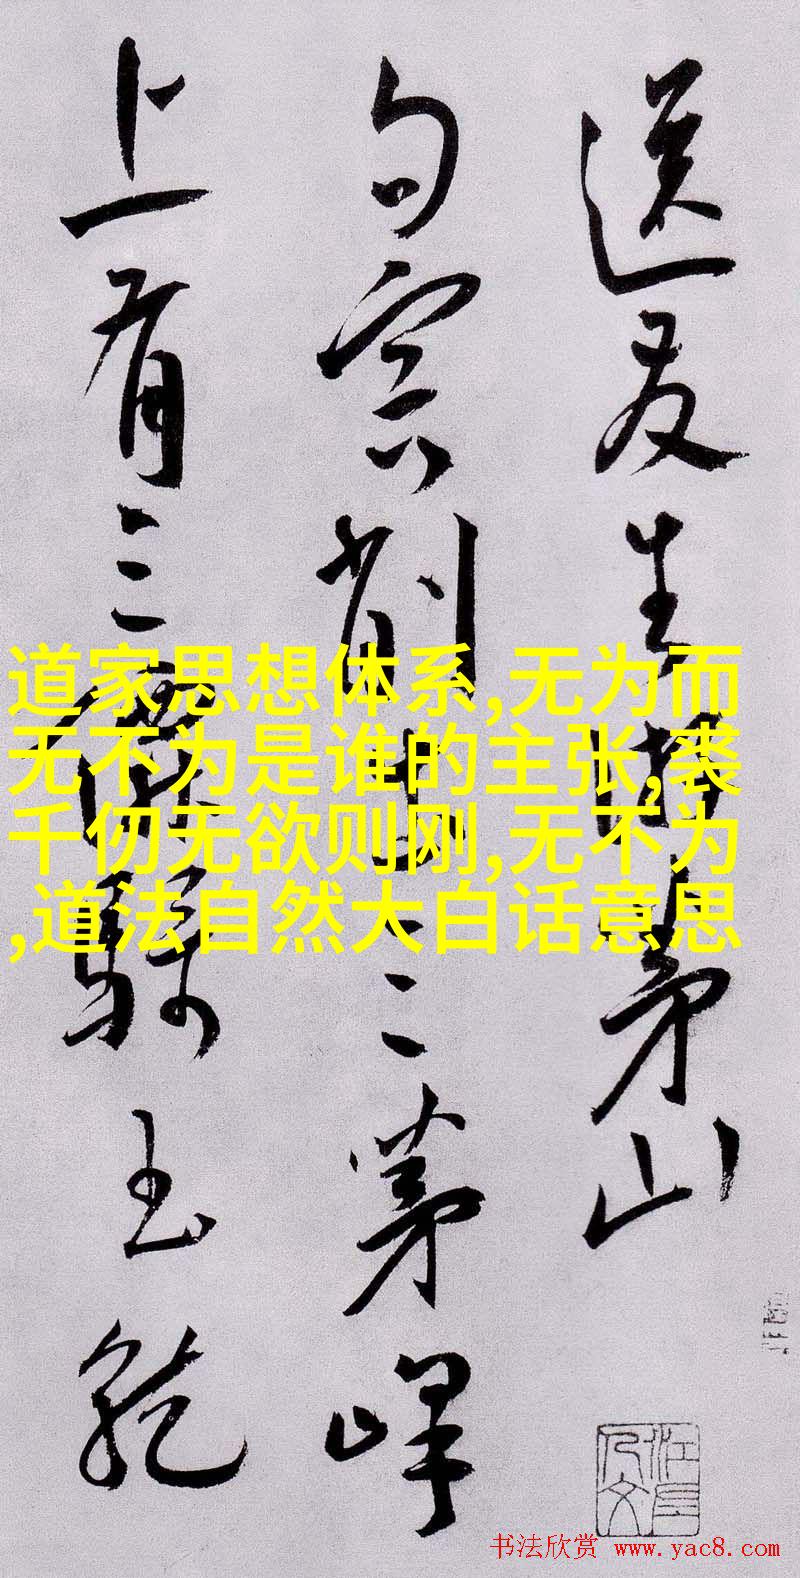 送友生游茅山
句容削出三茅峰
上有三 玉龍
道家思想体系,无为而
无不为是谁的主张,裘
千仞无欲则刚,无不为
,道法自然大白话意思
书法欣赏 www.yac8.com